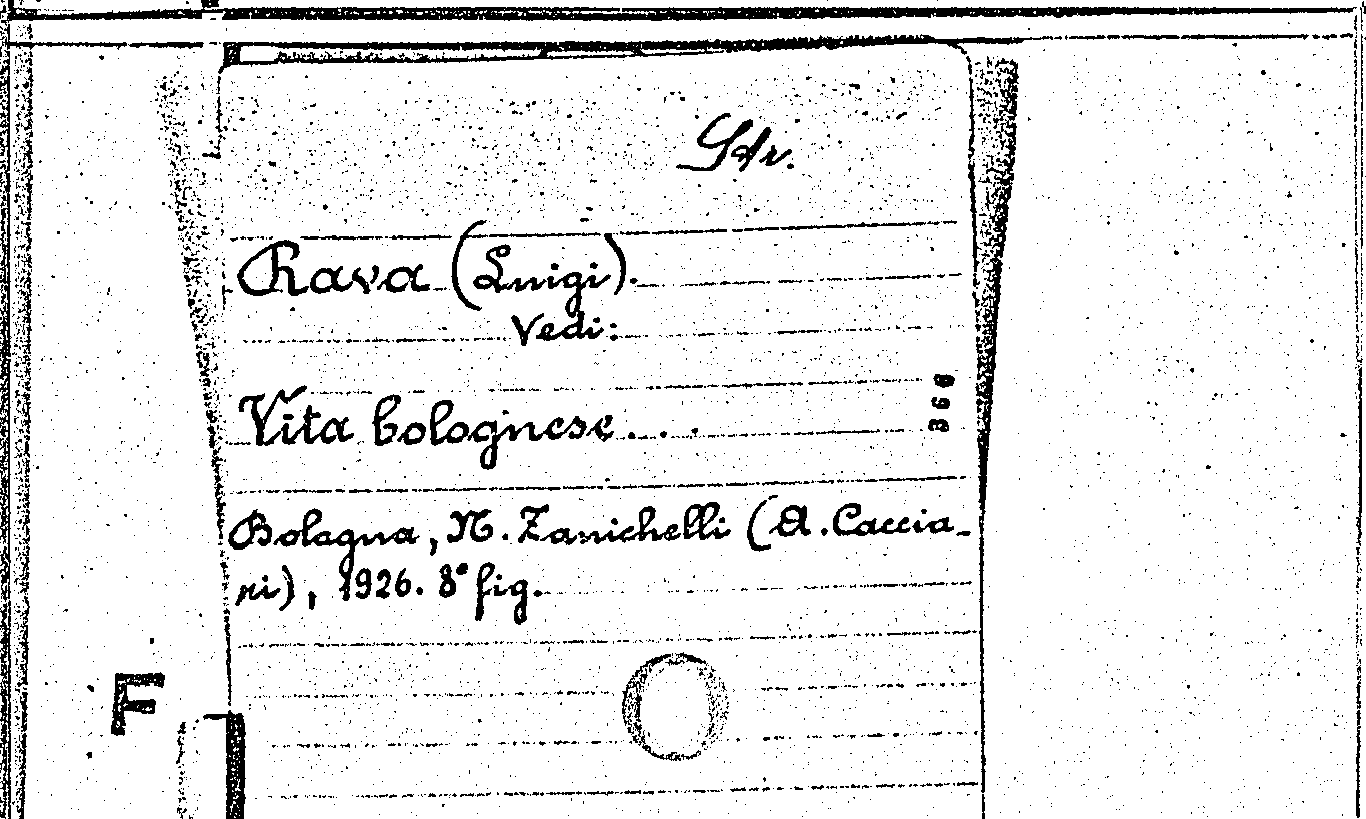 Str.
Rava (Luigi).
Vedi:
Vita bolognese . . .
368
Bologna, N. Zanichelli (A. Caccia-
ri), 1926. 8° fig.
F